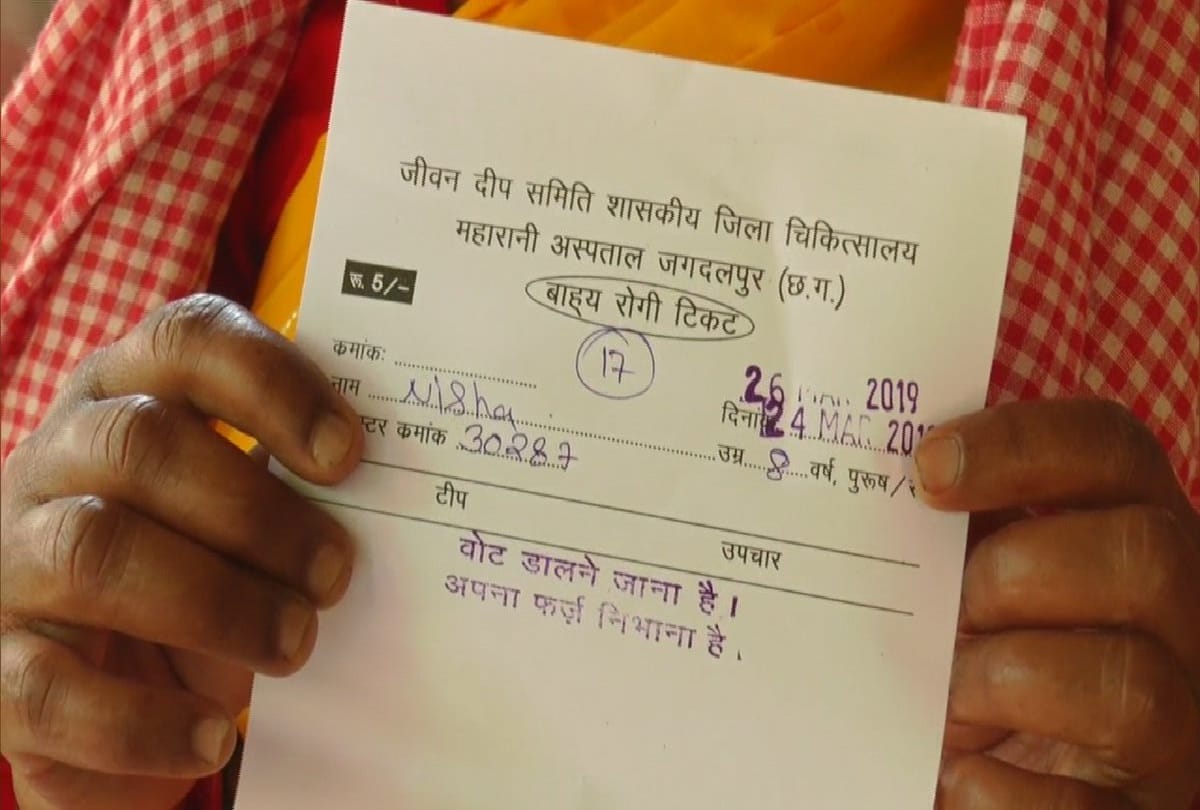 जीवन दीप समिति शासकीय जिला चिकित्सालय
महारानी अस्पताल जगदलपुर (छ.ग.)
रू. 5/-
बाह्य रोगी टिकट
17
कमांकः
26 2019
नाम Nisha
दिनां 24 MAR 201
टर कमांक 30287
उम्र 8 वर्ष, पुरूष/
टीप
उपचार
वोट डालने जाना है।
अपना फर्ज़ निभाना है.